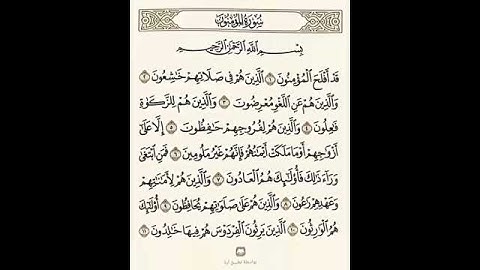 سُورَةُ المُؤْمِنُونَ
بِسْمِ ٱللَّهِ ٱلرَّحْمَٰنِ ٱلرَّحِيمِ
قَدْ أَفْلَحَ ٱلْمُؤْمِنُونَ ١ ٱلَّذِينَ هُمْ فِي صَلَاتِهِمْ خَٰشِعُونَ ٢
وَٱلَّذِينَ هُمْ عَنِ ٱللَّغْوِ مُعْرِضُونَ ٣ وَٱلَّذِينَ هُمْ لِلزَّكَوٰةِ
فَٰعِلُونَ ٤ وَٱلَّذِينَ هُمْ لِفُرُوجِهِمْ حَٰفِظُونَ ٥ إِلَّا عَلَىٰٓ
أَزْوَٰجِهِمْ أَوْ مَا مَلَكَتْ أَيْمَٰنُهُمْ فَإِنَّهُمْ غَيْرُ مَلُومِينَ ٦ فَمَنِ ٱبْتَغَىٰ
وَرَآءَ ذَٰلِكَ فَأُو۟لَٰٓئِكَ هُمُ ٱلْعَادُونَ ٧ وَٱلَّذِينَ هُمْ لِأَمَٰنَٰتِهِمْ
وَعَهْدِهِمْ رَٰعُونَ ٨ وَٱلَّذِينَ هُمْ عَلَىٰ صَلَوَٰتِهِمْ يُحَافِظُونَ ٩ أُو۟لَٰٓئِكَ
هُمُ ٱلْوَٰرِثُونَ ١٠ ٱلَّذِينَ يَرِثُونَ ٱلْفِرْدَوْسَ هُمْ فِيهَا خَٰلِدُونَ ١١
بواسطة تطبيق آية